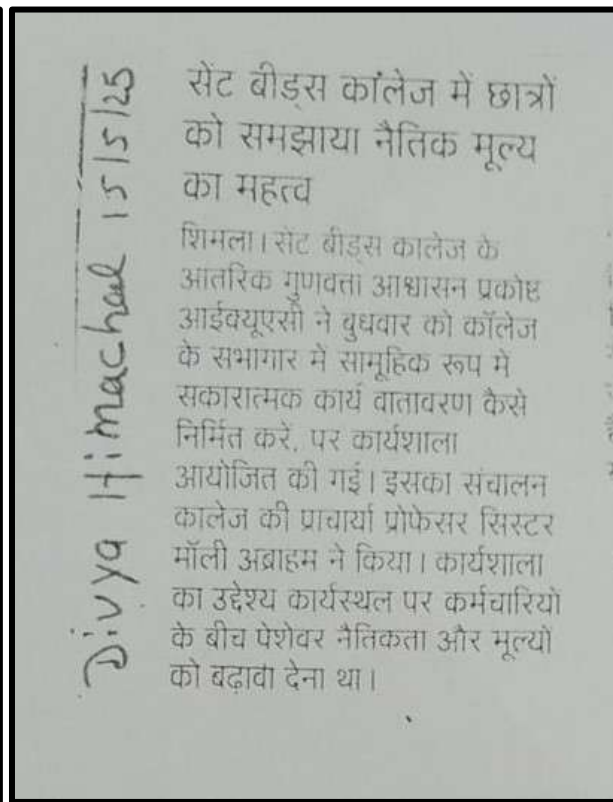 Divya Himachal 15/5/25
सेंट बीड्स कॉलेज में छात्रों
को समझाया नैतिक मूल्य
का महत्व
शिमला। सेंट बीड्स कालेज के
आतरिक गुणवत्ता आश्वासन प्रकोष्ट
आईक्यूएसी ने बुधवार को कॉलेज
के सभागार में सामूहिक रूप में
सकारात्मक कार्य वातावरण कैसे
निर्मित करें, पर कार्यशाला
आयोजित की गई। इसका संचालन
कालेज की प्राचार्या प्रोफेसर सिस्टर
मॉली अब्राहम ने किया। कार्यशाला
का उद्देश्य कार्यस्थल पर कर्मचारियों
के बीच पेशेवर नैतिकता और मूल्यों
को बढ़ावा देना था।